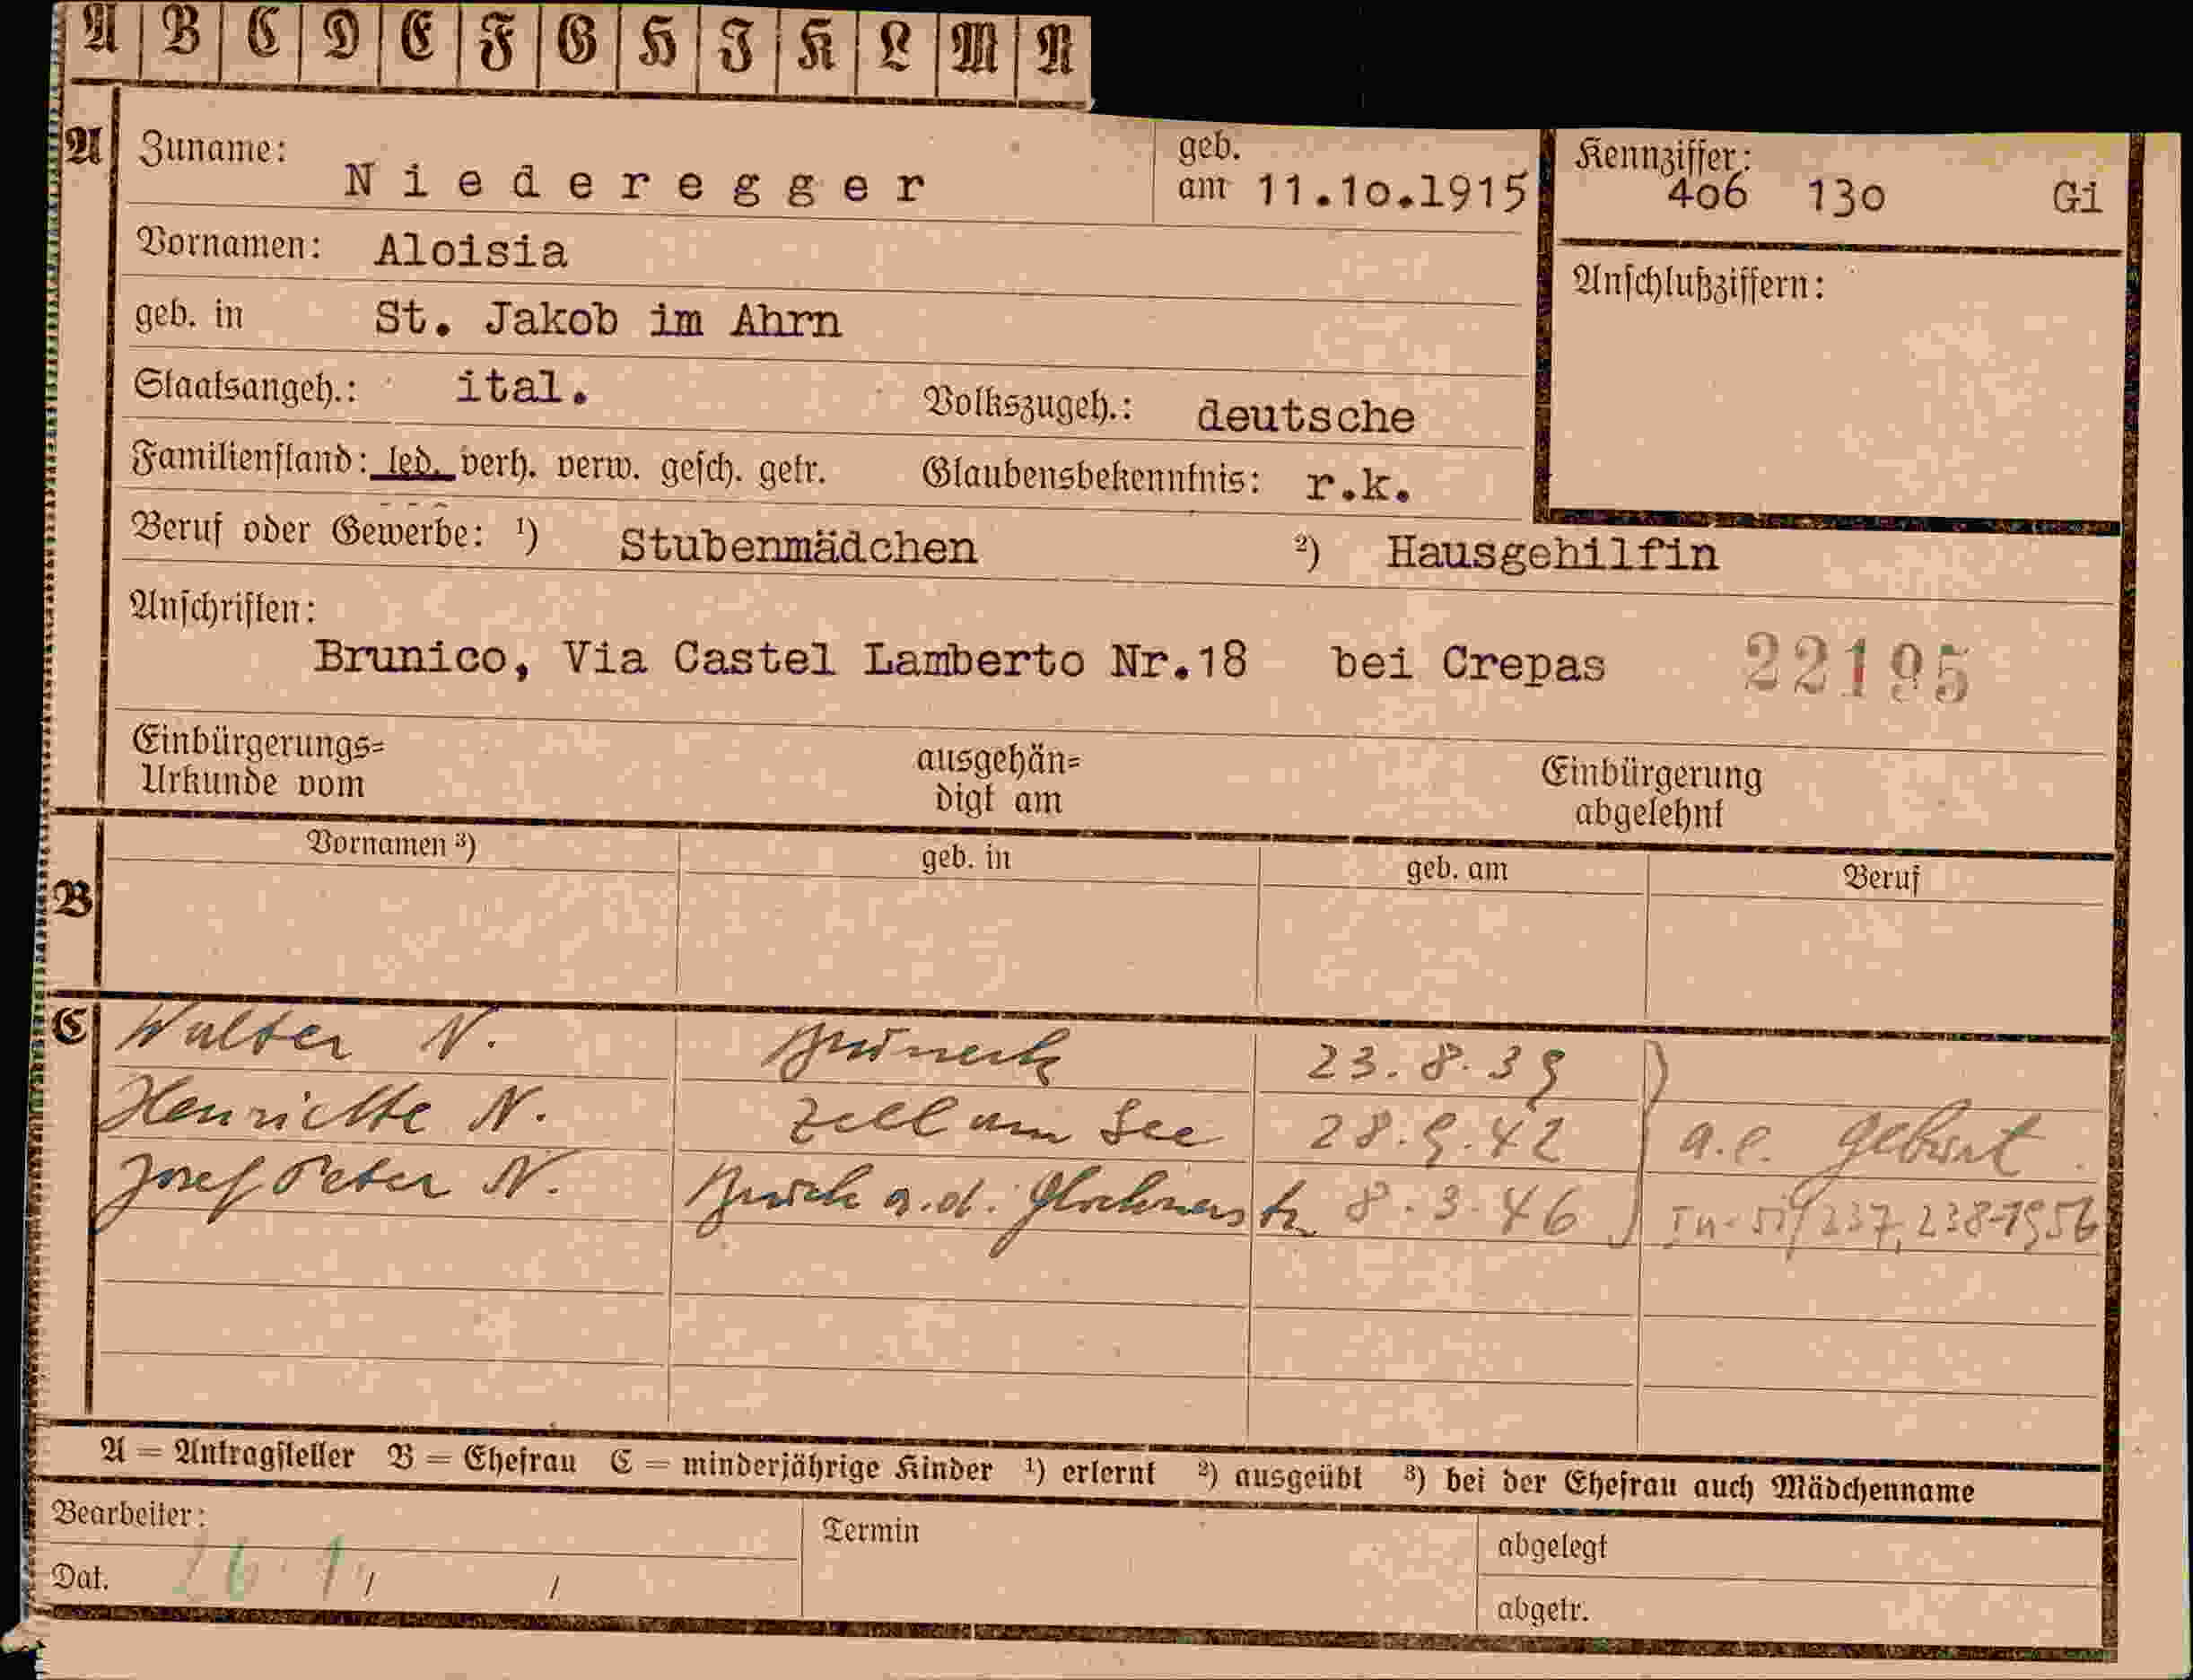 A B C D E F G H I K L M N
A Zuname: Niederegger geb. am 11.10.1915 Kennziffer: 406 130 Gi
Vornamen: Aloisia Anschlußziffern:
geb. in St. Jakob im Ahrn
Staatsangeh.: ital. Volkszugeh.: deutsche
Familienstand: led. verh. verw. gesch. getr. Glaubensbekenntnis: r.k.
Beruf oder Gewerbe: ¹) Stubenmädchen ²) Hausgehilfin
Anschriften:
Brunico, Via Castel Lamberto Nr.18 bei Crepas 22195
Einbürgerungs= ausgehän= Einbürgerung
Urkunde vom digt am abgelehnt
B Vornamen ³) geb. in geb. am Beruf
C Walter N. Bruneck 23.8.39
Henriette N. Zell am See 28.9.42 a.e. Geburt.
Josef Peter N. Bruck a.d. Glocknerstr. 8.3.46 237, 238-1956
A = Antragsteller B = Ehefrau C = minderjährige Kinder ¹) erlernt ²) ausgeübt ³) bei der Ehefrau auch Mädchenname
Bearbeiter: Termin abgelegt
Dat. 26.1 / / abgetr.